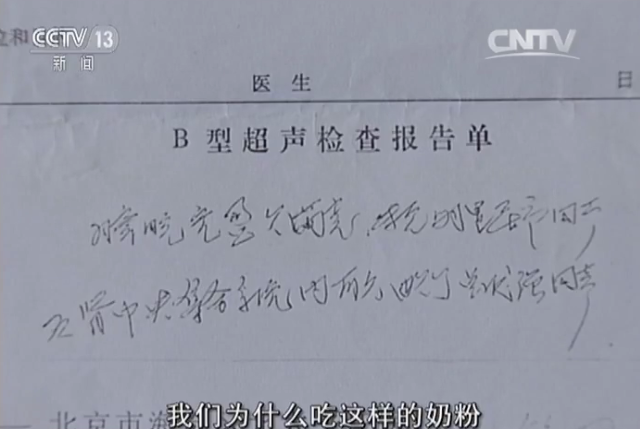 CCTV 13
新闻
CNTV
医生 日
B型超声检查报告单
膀胱充盈欠满意 回声
肾中央集合系统内 强回声
北京市海
我们为什么吃这样的奶粉